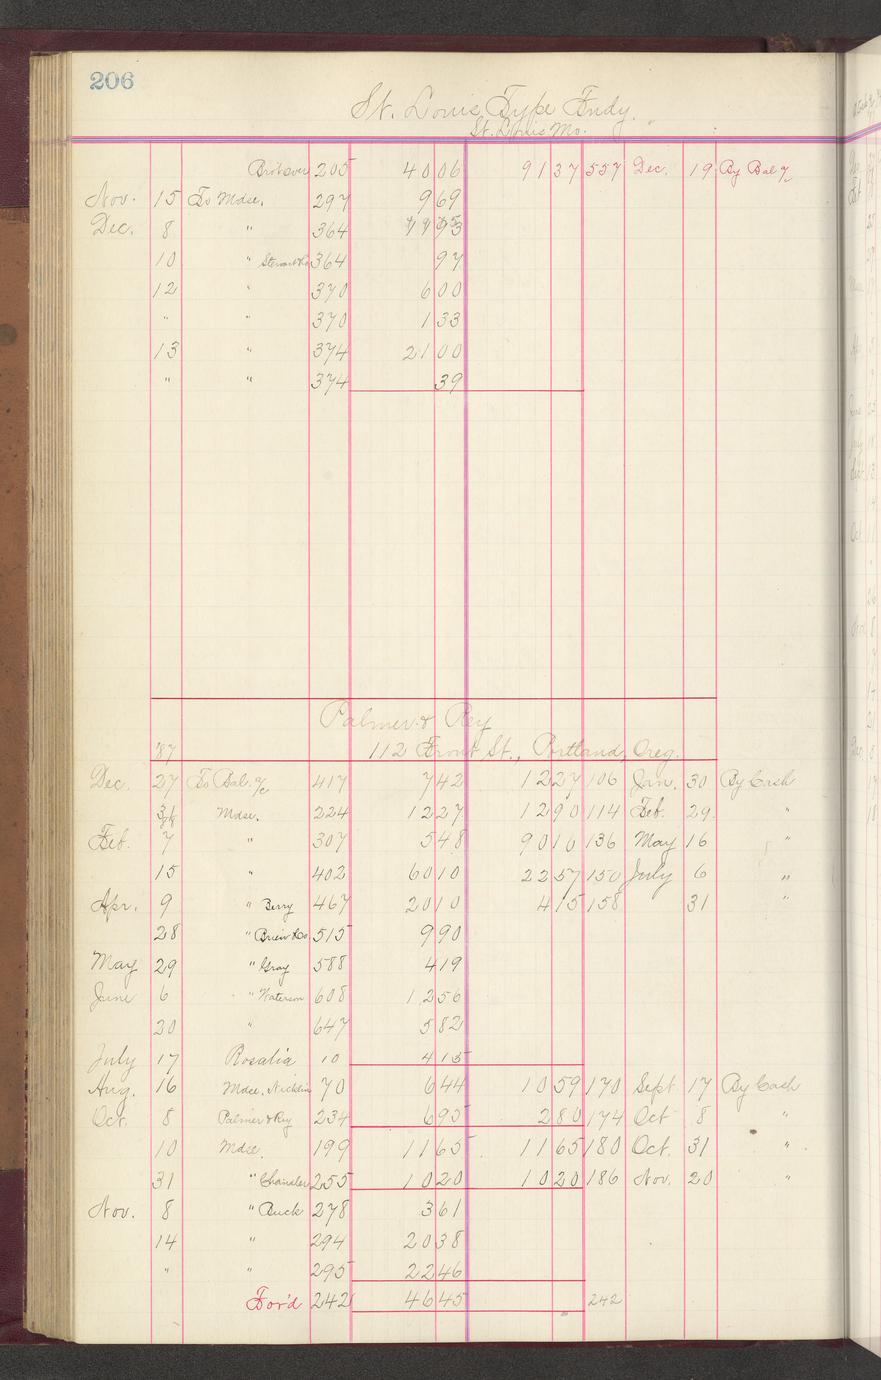 206
St. Louis Type Fndy.
St. Louis Mo.
Brot over 205 40 06 91 37 557 Dec. 19 By Bal %
Nov. 15 To Mdse. 297 9 69
Dec. 8 " 364
10 " 364 97
12 " 370 6 00
" " 370 1 33
13 " 374 21 00
" " 374 39
Palmer & Rey
'87 112 Front St., Portland, Oreg.
Dec. 27 To Bal. % 417 7 42 12 27 106 Jan. 30 By Cash
Mdse. 224 12 27 12 90 114 Feb. 29 "
Feb. 7 " 307 5 48 90 10 136 May 16 "
15 " 402 60 10 22 57 150 July 6 "
Apr. 9 " Berry 467 20 10 4 15 158 31 "
28 " 515 9 90
May 29 " Gray 588 4 19
June 6 " Waterson 608 12 56
20 " 647 5 82
July 17 Rosalia 10 4 15
Aug. 16 Mdse. Nicklin 70 6 44 10 59 170 Sept 17 By Cash
Oct. 8 Palmer & Rey 234 6 95 2 80 174 Oct 8 "
10 Mdse. 199 11 65 11 65 180 Oct. 31 "
31 " Chandler 255 10 20 10 20 186 Nov. 20 "
Nov. 8 " Buck 278 3 61
14 " 294 20 38
" " 295 22 46
For'd 242 46 45 242